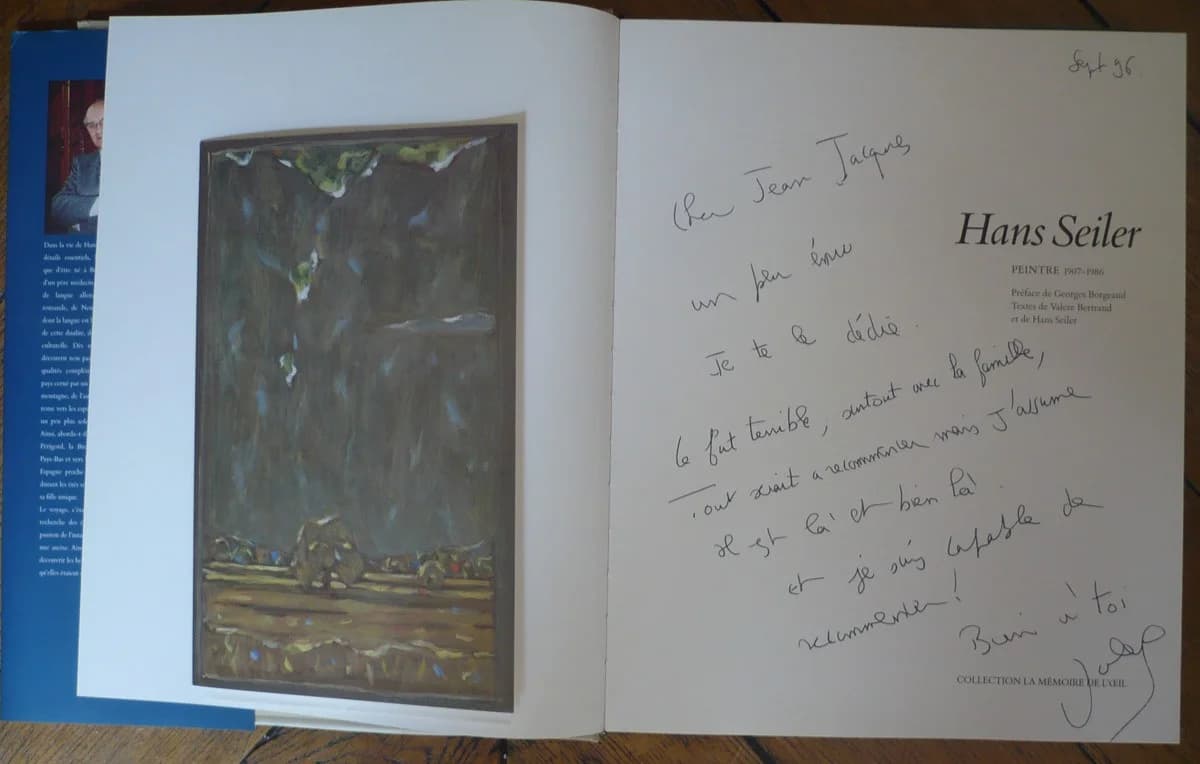 Dans la vie de Han
détails essentiels,
que d'être né à B
d'un père médecin
de langue allem
romande, de Neu
dont la langue est l
de cette dualité, d
culturelle. Dès
découvrent non pa
qualités complém
pays cerné par un
montagne, de l'au
un peu plus
Ainsi, aborda-t-il
Périgord, la
Pays-Bas et vers
Espagne proche
durant les étés
sa fille unique.
Le voyage, c'éta
recherche des
passion de l'
découvrir les
qu'elles étaient
Sept 96.
Cher Jean Jacques
un peu ému
Je te le dédie.
Ce fut terrible, surtout avec la famille,
Tout serait a recommencer mais J'assume
il est là et bien là.
et je suis capable de
recommencer!
Bien à toi
Hans Seiler
PEINTRE 1907-1986
Préface de Georges Borgeaud
Textes de Valère Bertrand
et de Hans Seiler
COLLECTION LA MÉMOIRE DE L'ŒIL